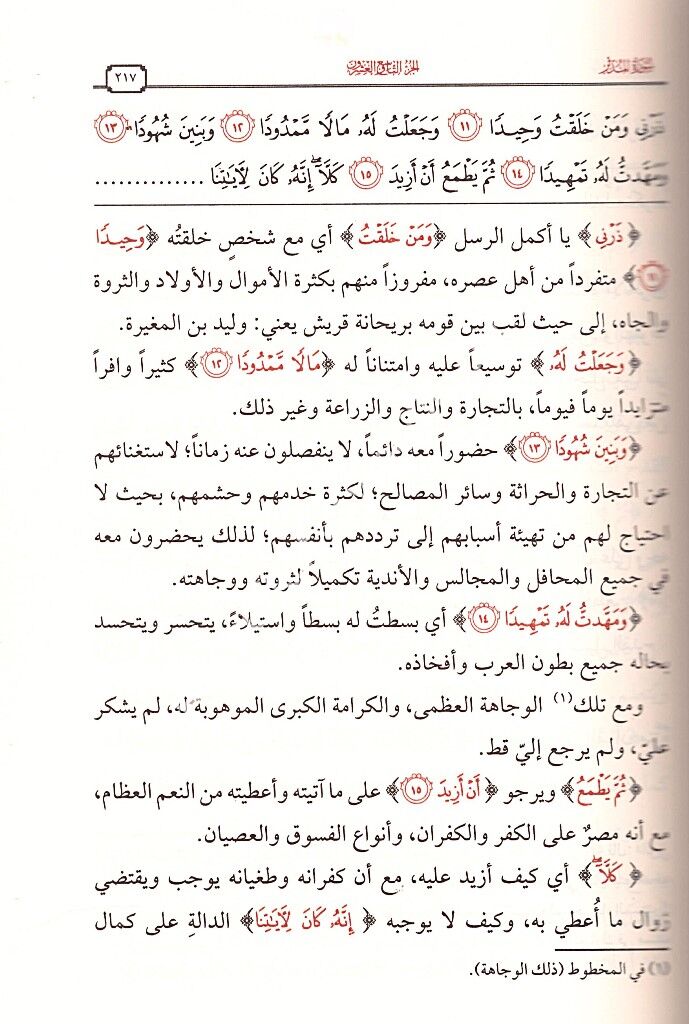 سورة المدثر الجزء التاسع والعشرون ٢١٧
ذَرْنِي وَمَنْ خَلَقْتُ وَحِيدًا ١١ وَجَعَلْتُ لَهُۥ مَالًا مَّمْدُودًا ١٢ وَبَنِينَ شُهُودًا ١٣
وَمَهَّدتُّ لَهُۥ تَمْهِيدًا ١٤ ثُمَّ يَطْمَعُ أَنْ أَزِيدَ ١٥ كَلَّآ ۖ إِنَّهُۥ كَانَ لِآيَٰتِنَا ..............
﴿ذَرْنِي﴾ يا أكمل الرسل ﴿وَمَنْ خَلَقْتُ﴾ أي مع شخصٍ خلقتُه ﴿وَحِيدًا
١١﴾ متفرداً من أهل عصره، مفروزاً منهم بكثرة الأموال والأولاد والثروة
والجاه، إلى حيث لقب بين قومه بريحانة قريش يعني: وليد بن المغيرة.
﴿وَجَعَلْتُ لَهُۥ﴾ توسيعاً عليه وامتناناً له ﴿مَالًا مَّمْدُودًا ١٢﴾ كثيراً وافراً
متزايداً يوماً فيوماً، بالتجارة والنتاج والزراعة وغير ذلك.
﴿وَبَنِينَ شُهُودًا ١٣﴾ حضوراً معه دائماً، لا ينفصلون عنه زماناً؛ لاستغنائهم
عن التجارة والحراثة وسائر المصالح؛ لكثرة خدمهم وحشمهم، بحيث لا
احتياج لهم من تهيئة أسبابهم إلى ترددهم بأنفسهم؛ لذلك يحضرون معه
في جميع المحافل والمجالس والأندية تكميلاً لثروته ووجاهته.
﴿وَمَهَّدتُّ لَهُۥ تَمْهِيدًا ١٤﴾ أي بسطتُ له بسطاً واستيلاءً، يتحسر ويتحسد
بحاله جميع بطون العرب وأفخاذه.
ومع تلك(١) الوجاهة العظمى، والكرامة الكبرى الموهوبة له، لم يشكر
عليّ، ولم يرجع إليّ قط.
﴿ثُمَّ يَطْمَعُ﴾ ويرجو ﴿أَنْ أَزِيدَ ١٥﴾ على ما آتيته وأعطيته من النعم العظام،
مع أنه مصرٌ على الكفر والكفران، وأنواع الفسوق والعصيان.
﴿كَلَّآ ۖ﴾ أي كيف أزيد عليه، مع أن كفرانه وطغيانه يوجب ويقتضي
زوال ما أُعطي به، وكيف لا يوجبه ﴿إِنَّهُۥ كَانَ لِآيَٰتِنَا﴾ الدالةِ على كمال
(١) في المخطوط (ذلك الوجاهة).